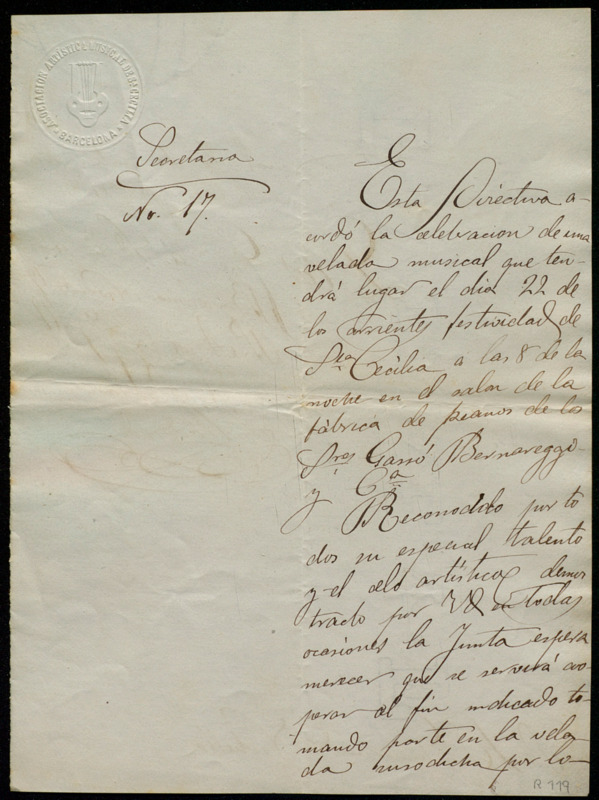 ASOCIACION ARTÍSTICO MUSICAL DE STA CECILIA
BARCELONA
Secretaria
No. 17.
Esta Directiva a-
cordó la celebracion de una
velada musical que ten-
drá lugar el dia 22 de
los corrientes festividad de
Sta Cecilia a las 8 de la
noche en el salon de la
fábrica de pianos de los
Sres Gassó Bernareggi
y Cia
Reconocido por to
dos su especial talento
y el celo artístico demos
trado por Vd en todas
ocasiones la Junta espera
merecer que se servirá coo
perar al fin indicado to-
mando parte en la vela
da susodicha por lo
R 119